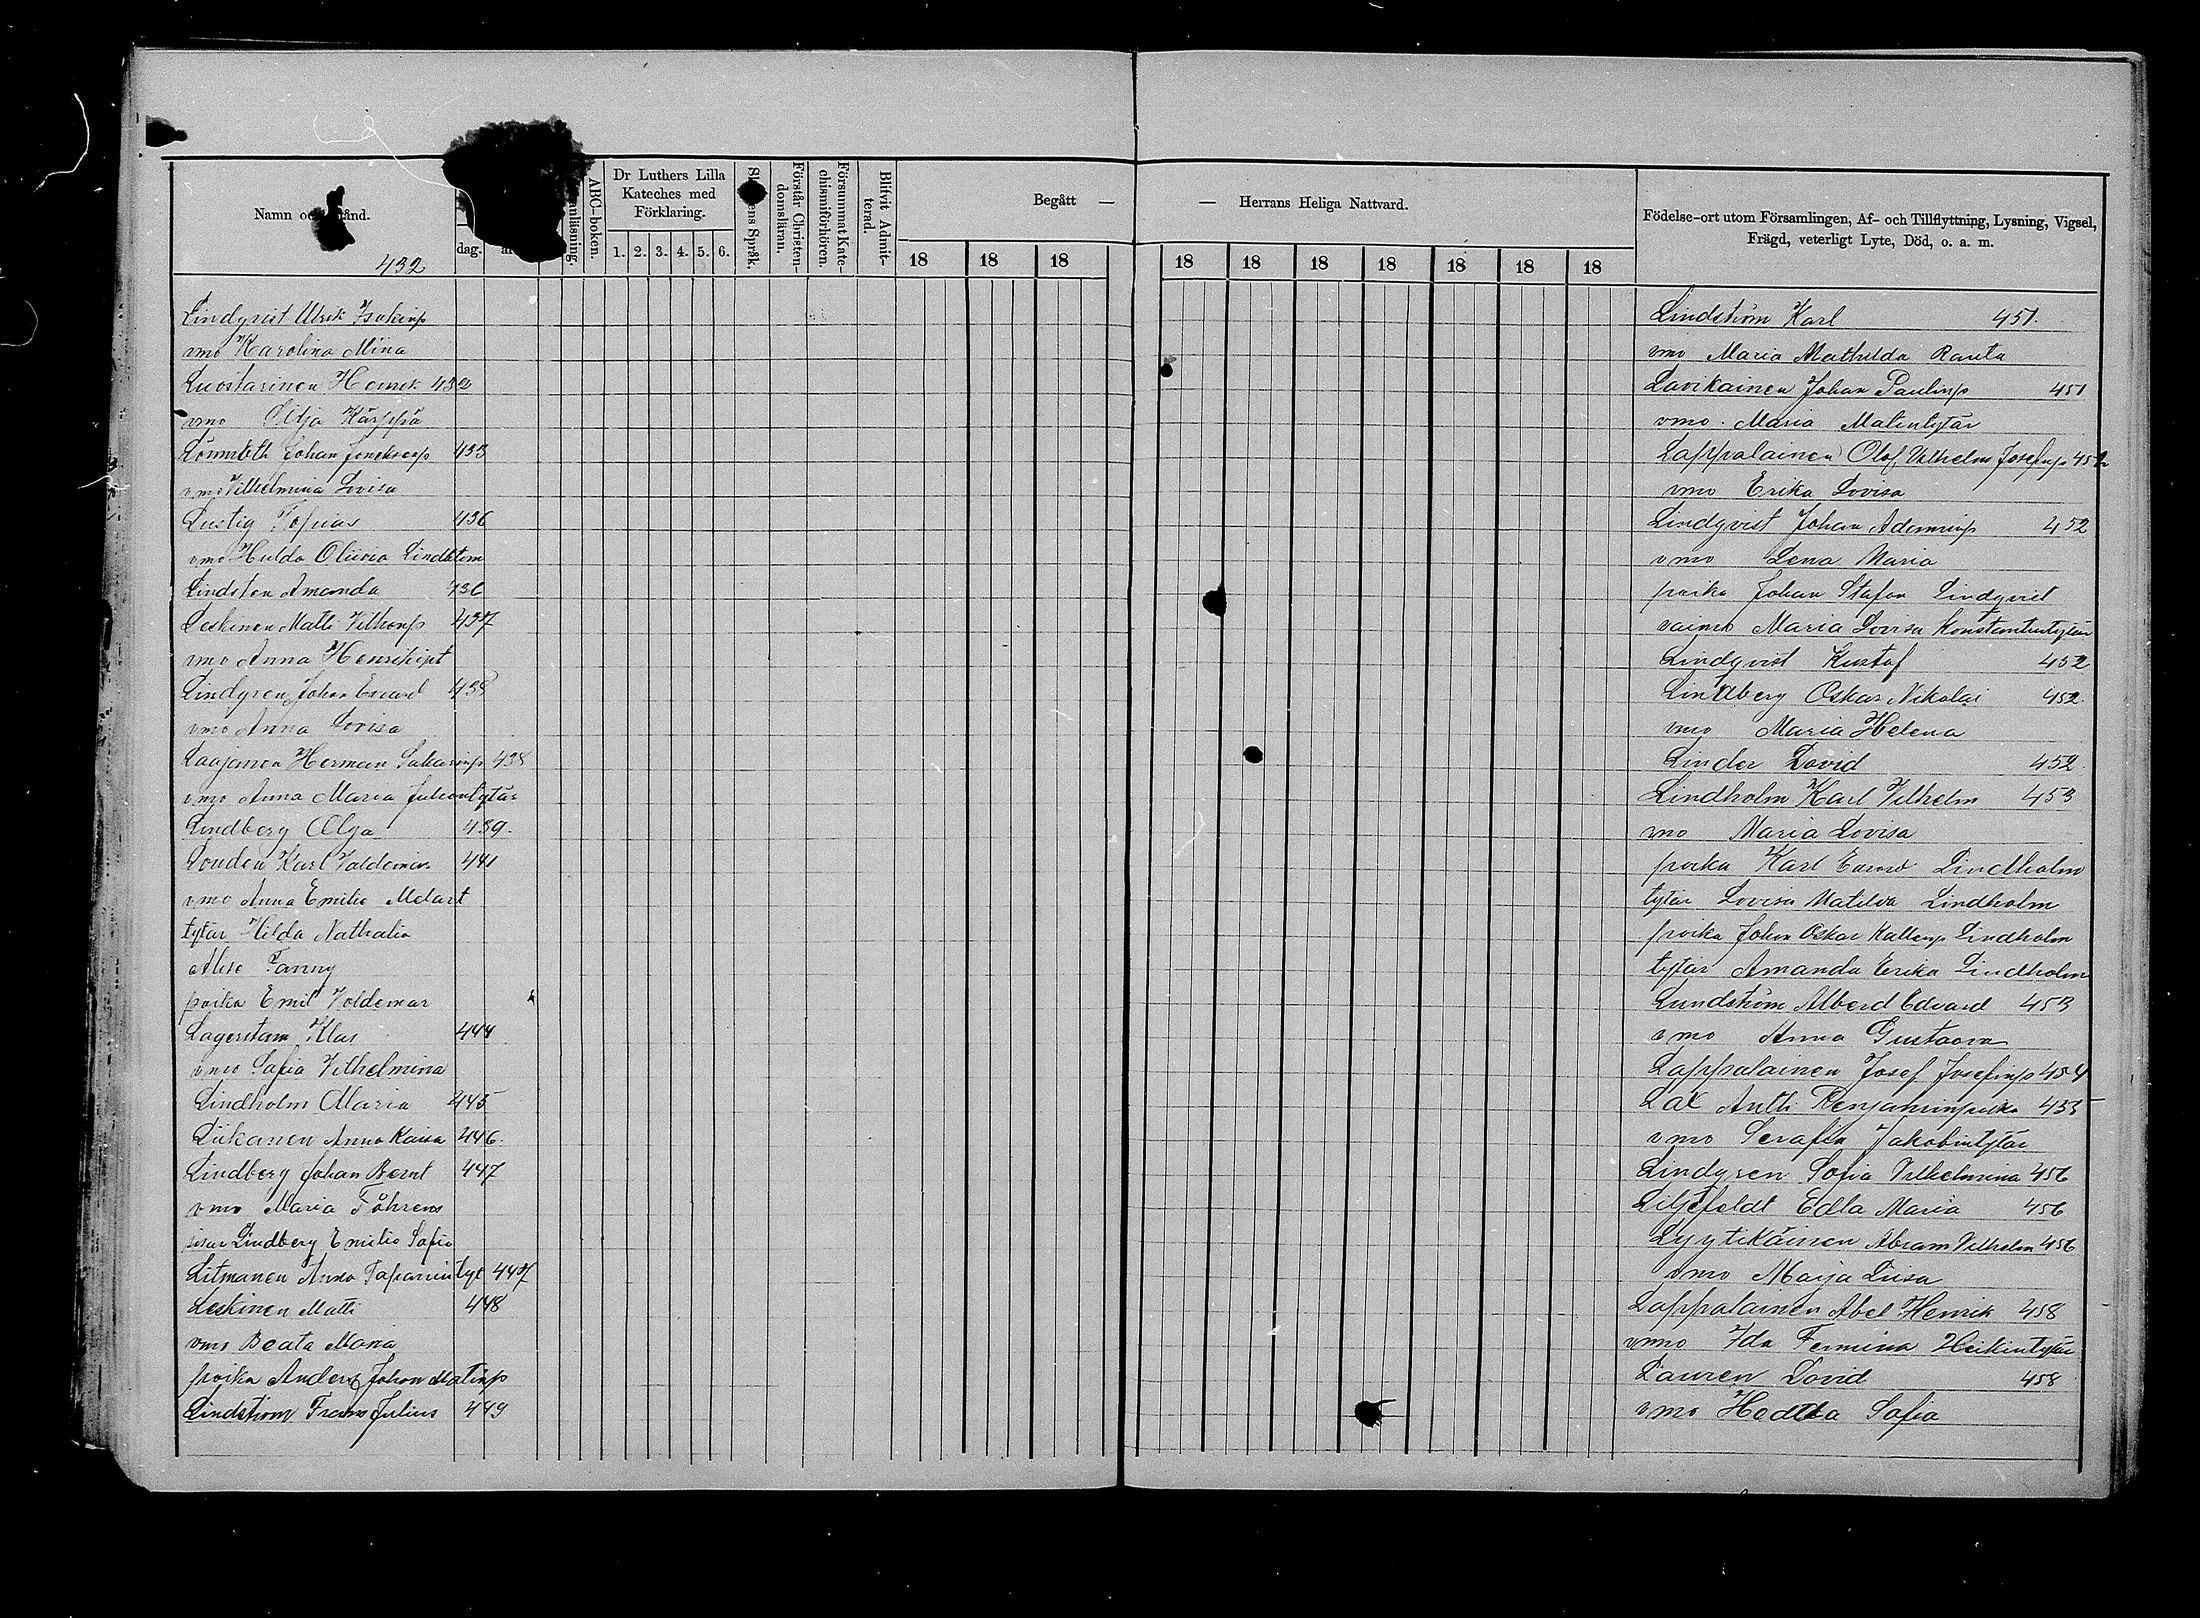 Namn och stånd.
dag.
ABC-boken.
Dr Luthers Lilla
Kateches med
Förklaring.
1. 2. 3. 4. 5. 6.
Förstår Christen-
domsläran.
Försummat Kate-
chismiförhören.
Blifvit Admit-
terad.
Begått —
18 18 18
— Herrans Heliga Nattvard.
18 18 18 18 18 18 18
Födelse-ort utom Församlingen, Af- och Tillflyttning, Lysning, Vigsel,
Frägd, veterligt Lyte, Död, o. a. m.
432
Lindqvist Ulrik
vmo Karolina Mina
Luostarinen Henrik 432
vmo Kärppä
Johan 433
vmo Vilhelmina Lovisa
Lustig Tobias 436
vmo Hulda Olivia
Lindsten Amanda 436
Leskinen Matti 437
vmo Anna
Lindgren Johan Edvard 438
vmo Anna Lovisa
Laajanen Herman 438
vmo Anna Maria
Lindberg Olga 439.
Londen Karl Valdemar 441
vmo Anna Emilie Melart
tytär Hilda Nathalia
Alise Fanny
poika Emil Voldemar
Lagerstam Klas 444
vmo Sofia Vilhelmina
Lindholm Maria 445
Liikanen Anna Kaisa 446.
Lindberg Johan Bernt 447
vmo Maria Föhrens
sisar Lindberg Emilie Sofia
Litmanen Anna Tapanintyt 447
Leskinen Matti 448
vmo Beata Maria
poika Anders Johan Matinp
Lindström Frans Julius 449
Lindström Karl 451.
vmo Maria Mathilda Rauta
Lavikainen Johan Paulinp 451
vmo. Maria Matintytär
Lappalainen Olof Vilhelm Josefinp 452
vmo Erika Lovisa
Lindqvist Johan Adaminp 452
vmo Lena Maria
poika Johan Stefan Lindqvist
vaimo Maria Lovisa Konstantintytär
Lindqvist Kustaf 452
Lindberg Oskar Nikolai 452.
vmo Maria Helena
Linder David 452.
Lindholm Karl Vilhelm 453
vmo Maria Lovisa
poika Karl Lindholm
tytär Lovisa Matilda Lindholm
poika Johan Oskar Kallenp Lindholm
tytär Amanda Erika Lindholm
Lundström Alberd Edvard 453
vmo Anna Gustaava
Lappalainen Josef Josefinp 454
Lax Antti Benjaminpoika 455
vmo Serafia Jakobintytär
Lindgren Sofia Vilhelmina 456
Liljefeldt Edla Maria 456
Lyytikäinen Abram Vilhelm 456
vmo Maija Liisa
Lappalainen Abel Henrik 458
vmo Ida Fermina Heikintytär
Lauren David 458
vmo Hedda Sofia